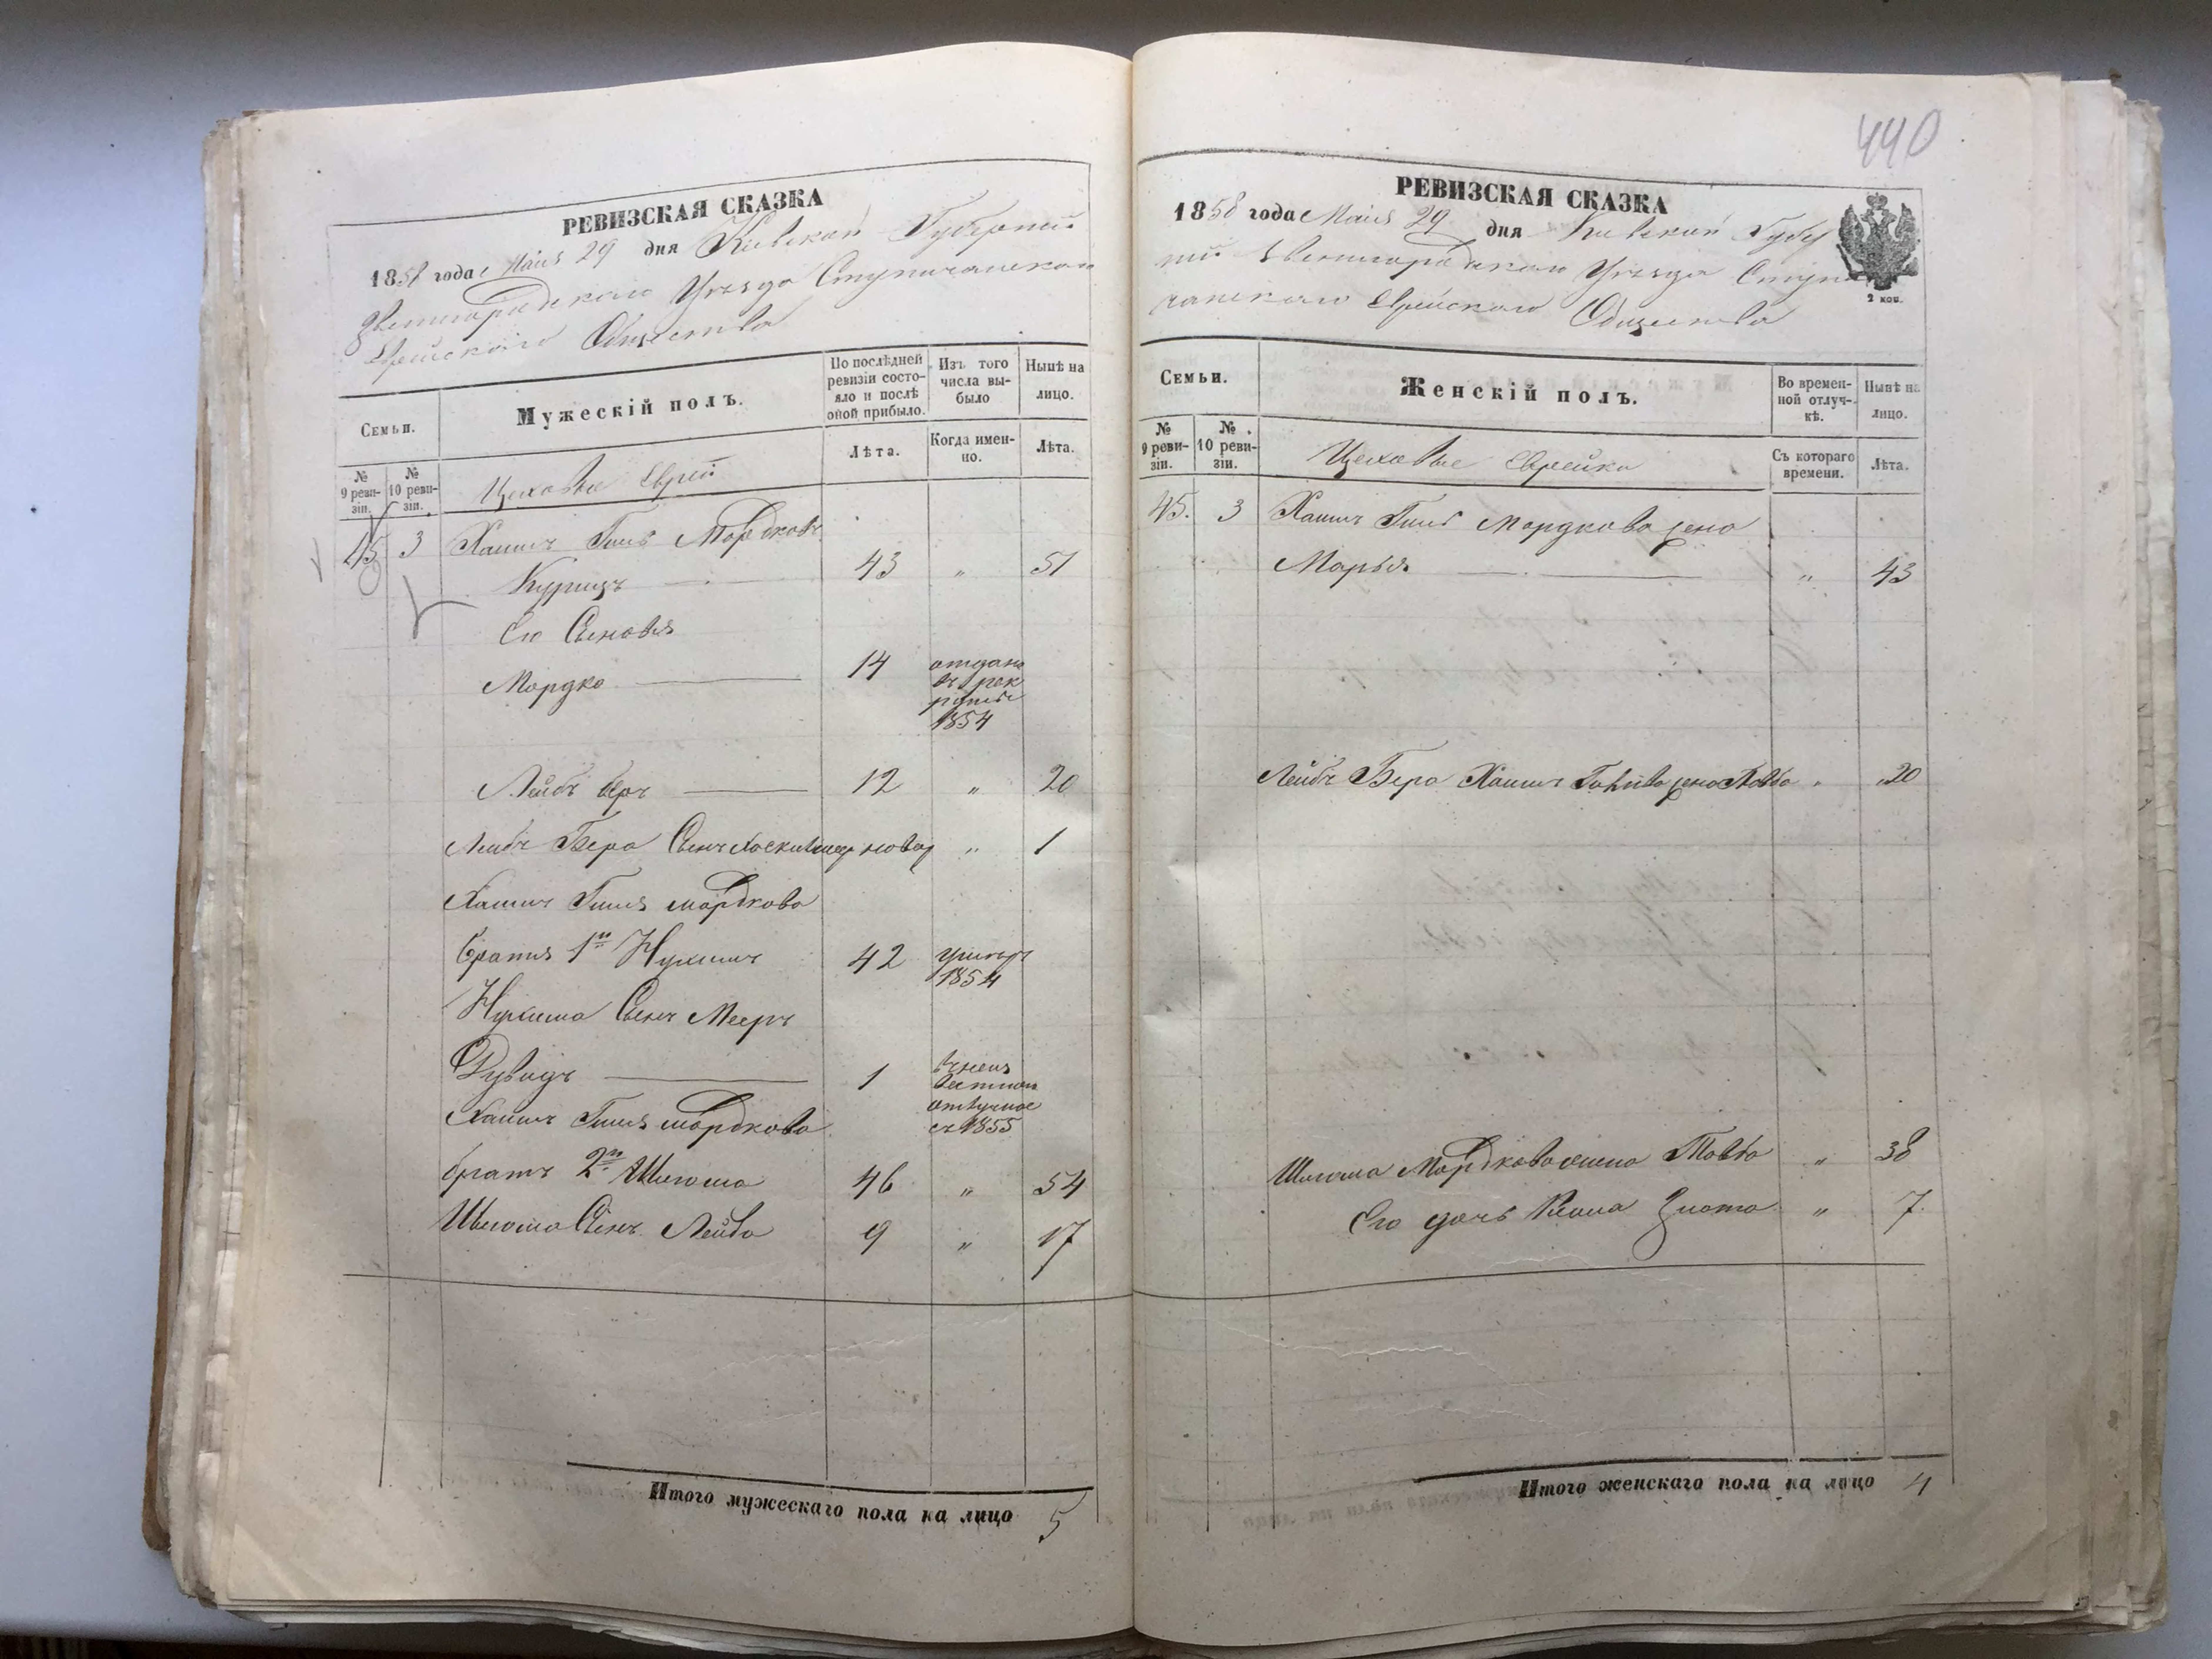 РЕВИЗСКАЯ СКАЗКА
1858 года Маия 29 дня Киевской Губерніи
Звенигородскаго Уезда Ступичанскаго
Еврейскаго Общества
Семьи.
Мужескій полъ.
По послѣдней ревизіи состояло и послѣ оной прибыло.
Изъ того числа выбыло
Нынѣ на лицо.
№ 9 ревизіи.
№ 10 ревизіи.
Цеховые Евреи
Лѣта.
Когда именно.
Лѣта.
45 3 Хаимъ Гилѣ Мордковъ
Курицъ 43 " 51
Его Сыновья
Мордко 14 отданъ
въ рек
руты
1854
Лейбъ Беръ 12 " 20
Лейбъ Бера Сынъ новор " 1
Хаимъ Гиля Мордкова
братья 1й Нухимъ 42 умеръ
1854
Нухима Сынъ Мееръ
Дувидъ 1 въ неиз
вестной
отлучке
съ 1855
Хаимъ Гиля Мордкова
братъ 2й Шлиома 46 " 54
Шлиома Сынъ Лейба 9 " 17
Итого мужескаго пола на лицо 5
440
РЕВИЗСКАЯ СКАЗКА
1858 года Маия 29 дня Киевской Губер
ніи Звенигородскаго Уезда Ступи
чанскаго Еврейскаго Общества
2 коп.
Семьи.
Женскій полъ.
Во временной отлучкѣ.
Нынѣ на лицо.
№ 9 ревизіи.
№ 10 ревизіи.
Цеховые Еврейки
Съ котораго времени.
Лѣта.
45. 3 Хаимъ Гилѣ Мордкова жена
Марья " 43
Лейбъ Бера Хаимъ жена " 20
Шлиома Мордкова жена Товба " 38
Его дочь Злота " 7.
Итого женскаго пола на лицо 4